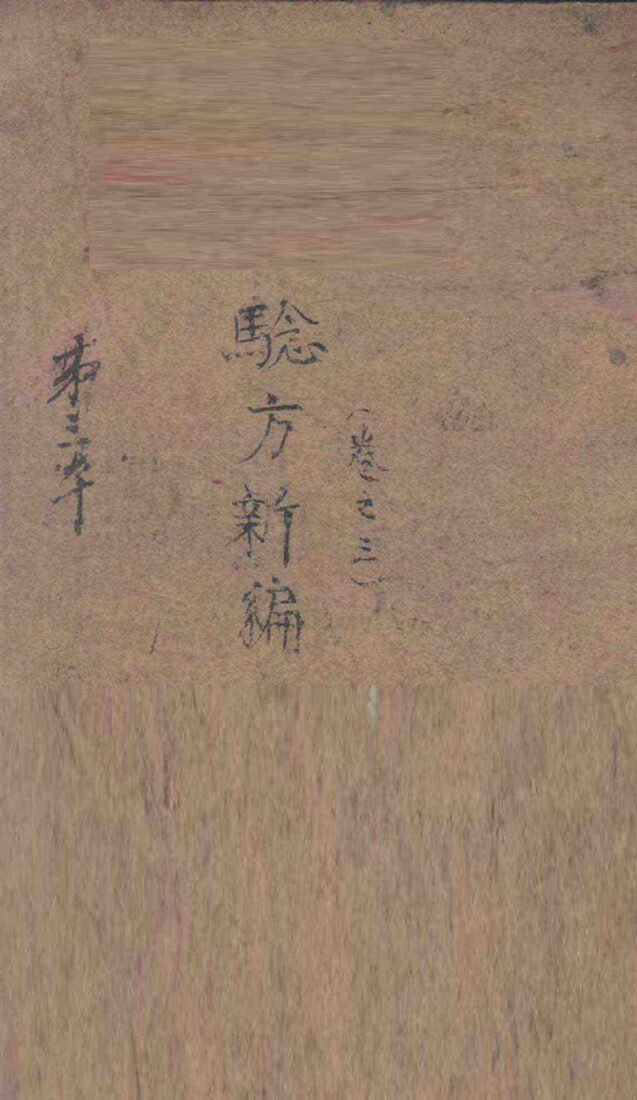 （卷之三）
騐方新编
第三本